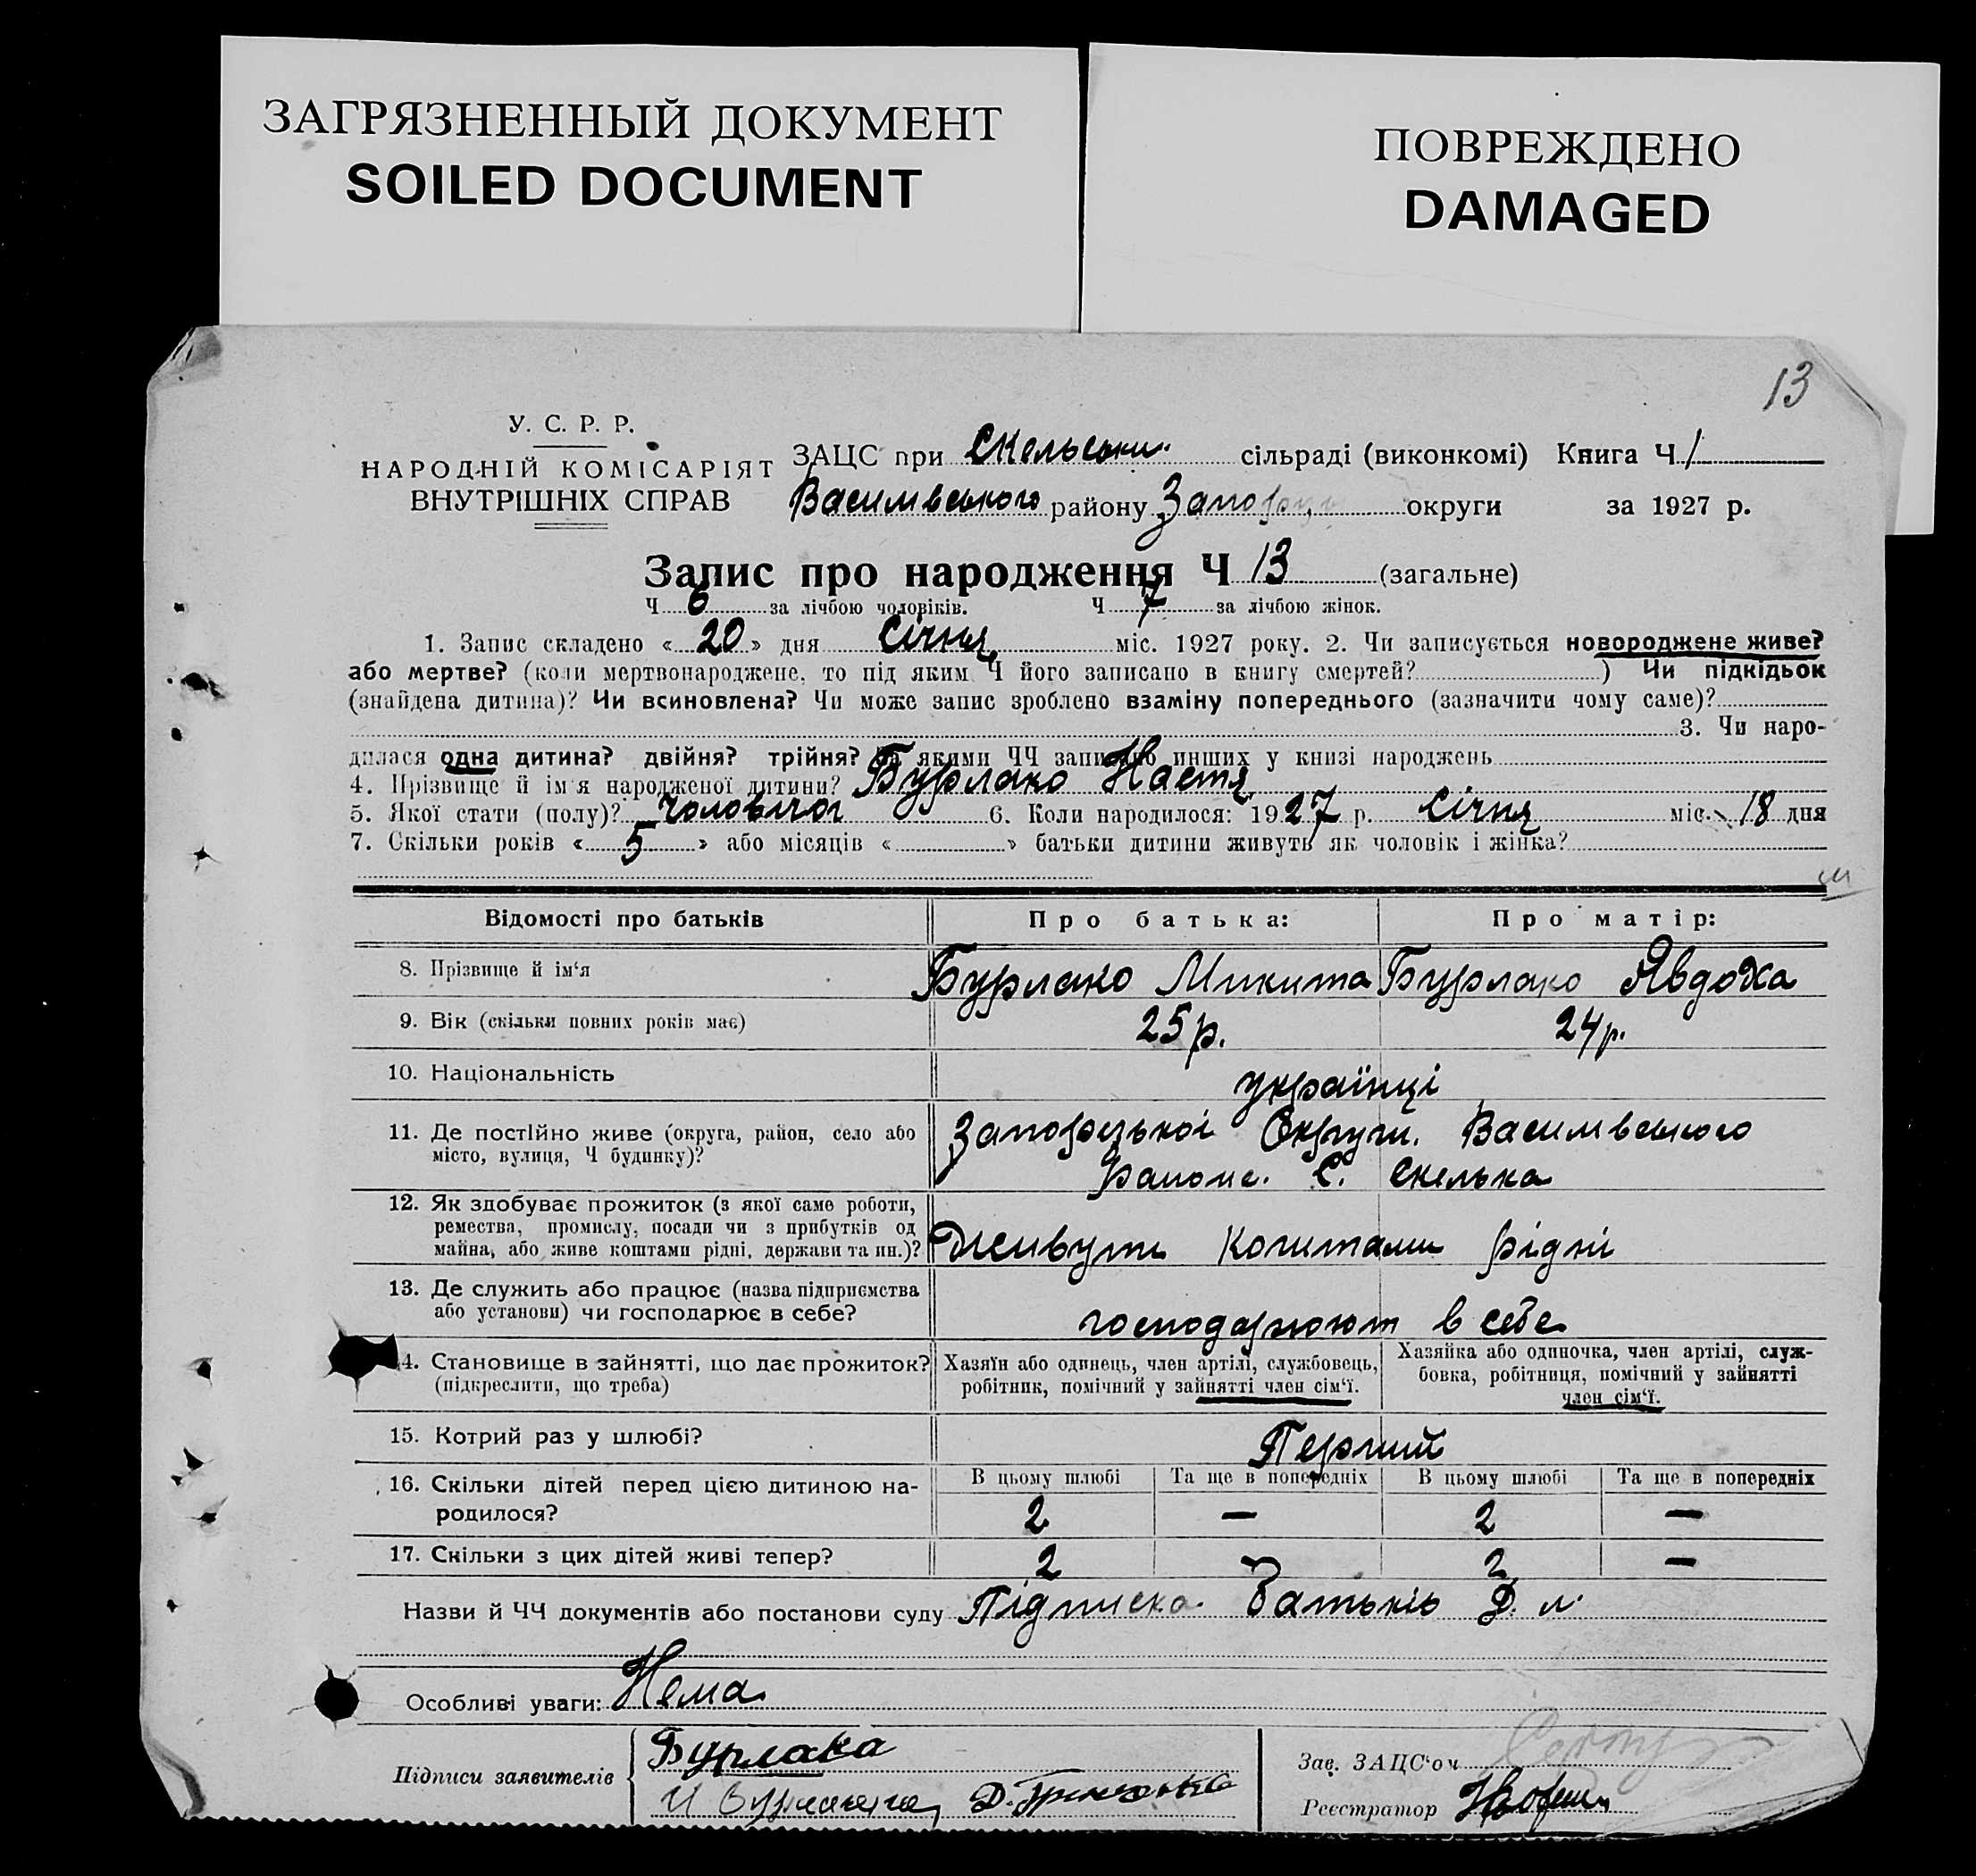 ЗАГРЯЗНЕННЫЙ ДОКУМЕНТ
SOILED DOCUMENT
ПОВРЕЖДЕНО
DAMAGED
13
У. С. Р. Р.
НАРОДНІЙ КОМІСАРІЯТ
ВНУТРІШНІХ СПРАВ
ЗАЦС при Скельськи сільраді (виконкомі) Книга Ч 1
Василівського району Запоріз округи за 1927 р.
Запис про народження Ч 13 (загальне)
Ч 6 за лічбою чоловіків. Ч 7 за лічбою жінок.
1. Запис складено « 20 » дня Січня міс. 1927 року. 2. Чи записується новороджене живе?
або мертве? (коли мертвонароджене, то під яким Ч його записано в книгу смертей? ) Чи підкідьок
(знайдена дитина)? Чи всиновлена? Чи може запис зроблено взаміну попереднього (зазначити чому саме)?
3. Чи наро-
дилася одна дитина? двійня? трійня? За якими ЧЧ записано инших у книзі народжень
4. Прізвище й ім'я народженої дитини? Бурлако Настя
5. Якої стати (полу)? чоловічої 6. Коли народилося: 1927 р. Січня міс. 18 дня
7. Скільки років « 5 » або місяців « » батьки дитини живуть як чоловік і жінка?
Відомості про батьків Про батька: Про матір:
8. Прізвище й ім'я Бурлако Микита Бурлако Явдоха
9. Вік (скільки повних років має) 25 р. 24 р.
10. Національність українці
11. Де постійно живе (округа, район, село або Запорізької Округи. Василівського
місто, вулиця, Ч будинку)? Району. С. Скелька
12. Як здобуває прожиток (з якої саме роботи,
ремества, промислу, посади чи з прибутків од
майна, або живе коштами рідні, держави та ин.)? Живуть коштами рідні
13. Де служить або працює (назва підприємства
або установи) чи господарює в себе? господарюют в себе
14. Становище в зайнятті, що дає прожиток? Хазяїн або одинець, член артілі, службовець, Хазяйка або одиночка, член артілі, служ-
(підкреслити, що треба) робітник, помічний у зайнятті член сім'ї. бовка, робітниця, помічний у зайнятті
член сім'ї.
15. Котрий раз у шлюбі? Перший
В цьому шлюбі Та ще в попередніх В цьому шлюбі Та ще в попередніх
16. Скільки дітей перед цією дитиною на-
родилося? 2 — 2 —
17. Скільки з цих дітей живі тепер? 2 2 —
Назви й ЧЧ документів або постанови суду Підписка Батьків
Особливі уваги: Нема
Підписи заявителів Бурлака
Зав. ЗАЦС'ом
Реєстратор